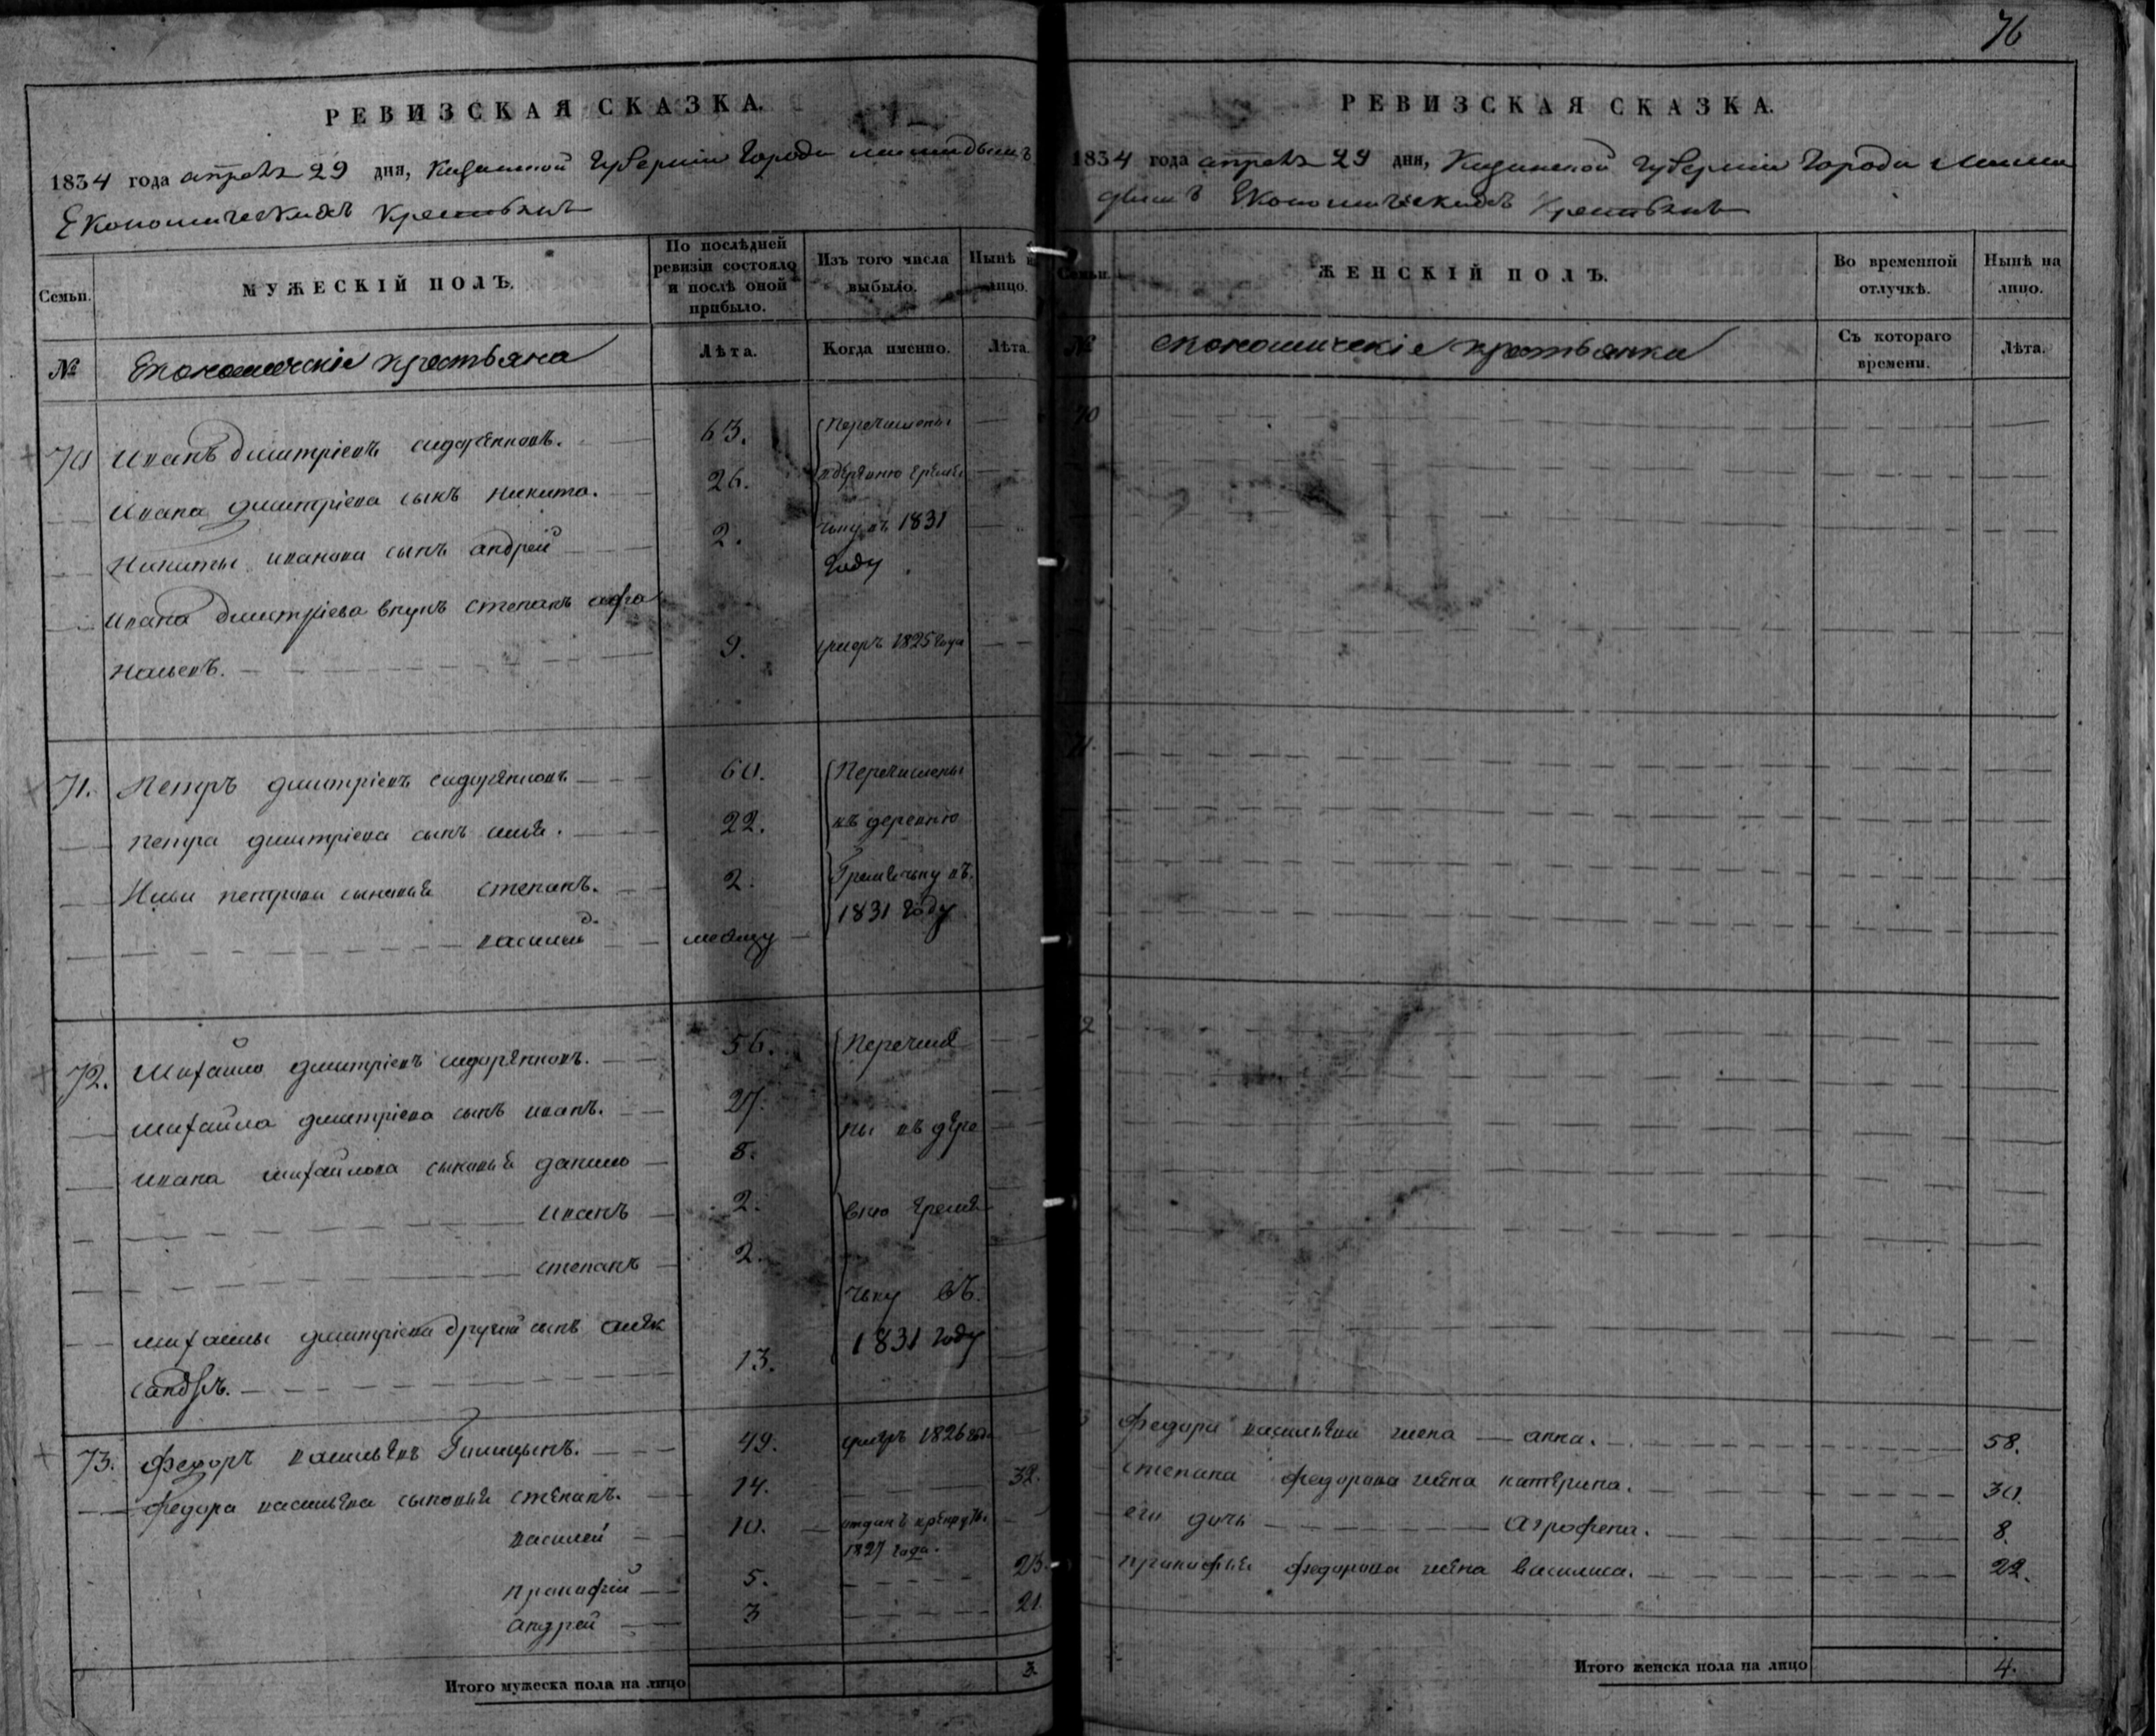 76
РЕВИЗСКАЯ СКАЗКА.
1834 года апреля 29 дня, Казанской Губернии города мамадыша
Економическихъ Крестьянъ
Семьи.
МУЖЕСКІЙ ПОЛЪ.
По послѣдней ревизіи состояло и послѣ оной прибыло.
Изъ того числа выбыло.
Нынѣ на лицо.
№
Економическіе крестьяна
Лѣта.
Когда именно.
Лѣта.
70 Иванъ дмитріевъ сидоренковъ. 63. Перечислены
Ивана дмитріева сынъ никита. 26. в деревню Греме
Никиты иванова сынъ андрей 2. чьку въ 1831
году
Ивана дмитріева внукъ степанъ афа
насьевъ. 9. умеръ 1825 года
71. Петръ дмитріевъ сидоренковъ 60. Перечислены
Петра дмитріева сынъ илья. 22. въ деревню
Ильи петрова сыновья степанъ. 2. Гремечьку въ
1831 году
василей
72. Михайло дмитріевъ сидоренковъ. 56. Перечисле
михайла дмитріева сынъ иванъ. 27. ны въ дере
ивана михайлова сыновья данило 5.
иванъ 2. вню Греме
степанъ 2.
чьку въ
михайлы дмитріева другой сынъ алек 1831 году
сандръ. 13.
73. Федоръ васильевъ Галицынъ. 49. умеръ 1826 года
Федора васильева сыновья степанъ. 14. 32.
василей 10. отданъ в рекруты
1827 года.
прокофій 5. 23.
андрей 3 21.
Итого мужеска пола на лицо 3.
РЕВИЗСКАЯ СКАЗКА.
1834 года апреля 29 дня, Казанской Губерніи города Мама
дыша Економическихъ Крестьянъ
Семьи.
ЖЕНСКІЙ ПОЛЪ.
Во временной отлучкѣ.
Нынѣ на лицо.
№
економическіе крестьянки
Съ котораго времени.
Лѣта.
70
71.
72
Федора васильева жена анна. 58.
степана федорова жена катерина. 30.
его дочь Агрофена. 8.
прокофья федорова жена василиса. 22.
Итого женска пола на лицо 4.